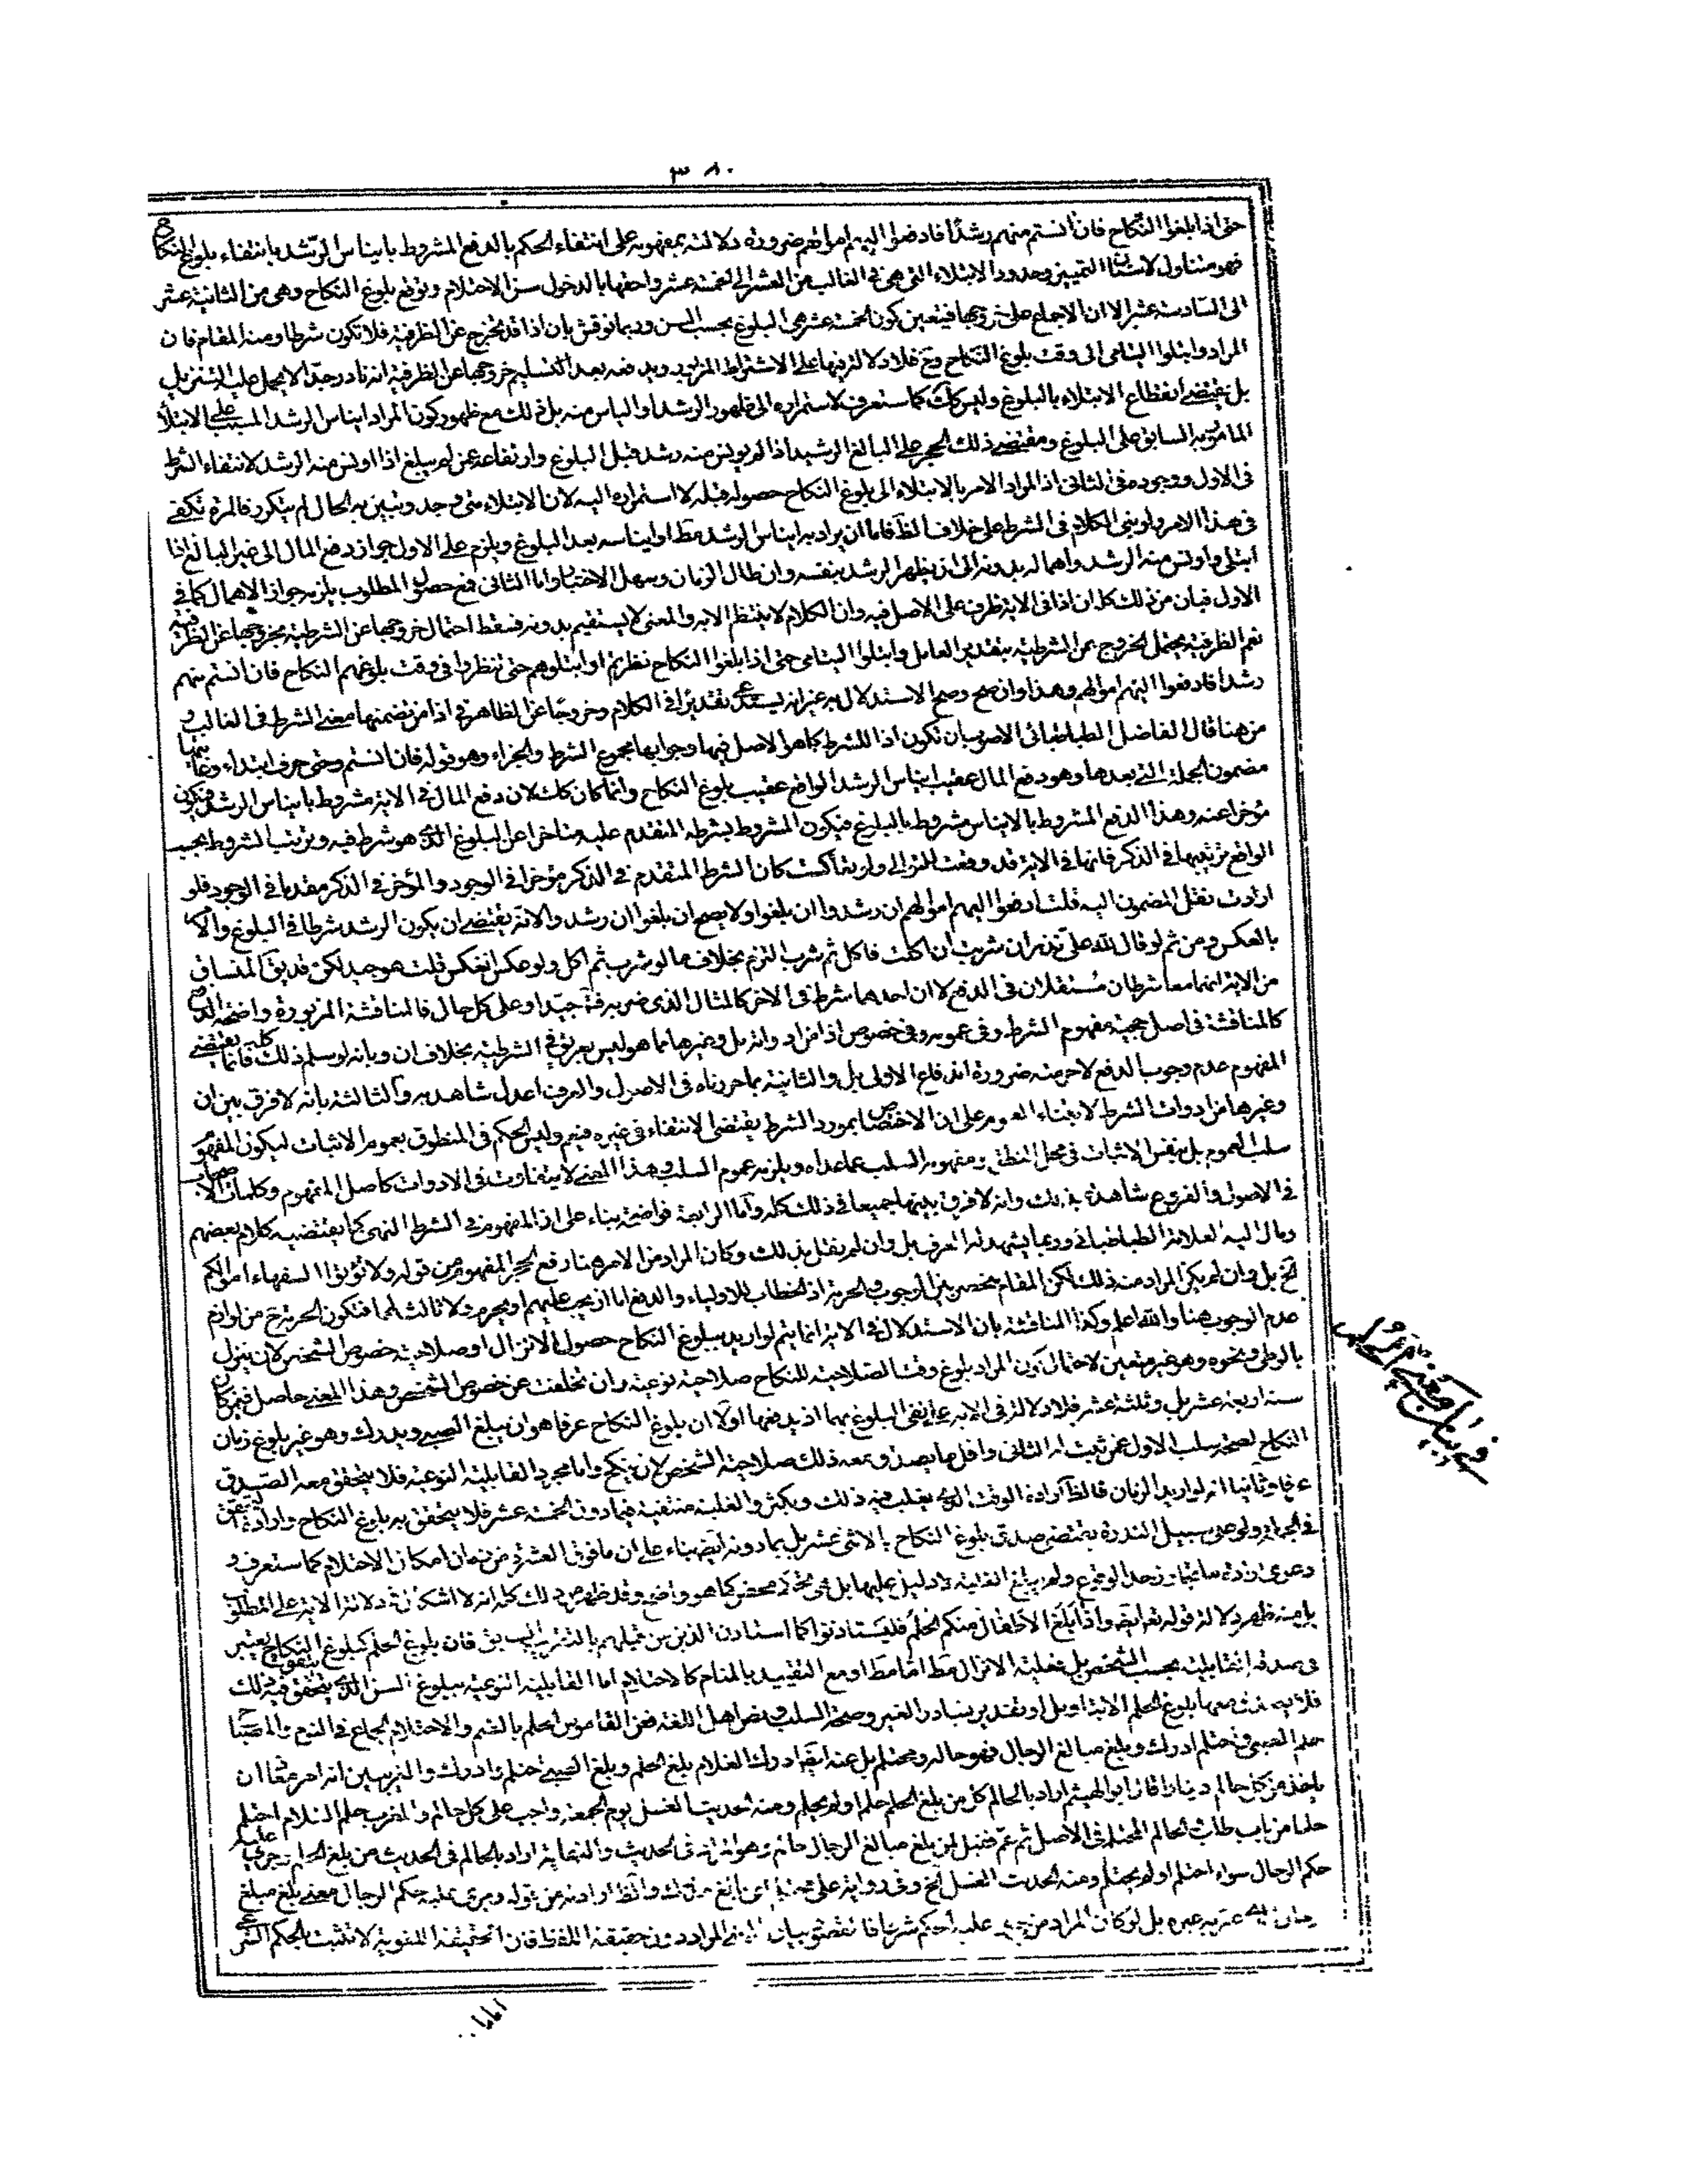 ٣٨٠
حتى اذا بلغوا النكاح فان انستم منهم رشدا فادفعوا اليهم اموالهم ضرورة دلالته بمفهومه على انتفاء الحكم بالدفع المشروط بايناس الرشد بانتفاء بلوغ النكاح
فهو متناول لاسنان التمييز وحدود الابتلاء التى هى فى الغالب من العشر الى الخمسة عشر واحقها بالدخول سن الاحتلام وتوقع بلوغ النكاح وهى من الثانية عشر
الى السادسة عشر الا ان الاجماع على خروجها فيتعين كون الخمسة عشر هى البلوغ بحسب السن وربما نوقش بان اذا قد تخرج عن الظرفية فلا تكون شرطا ومنه المقام فان
المراد وابتلوا اليتامى الى وقت بلوغ النكاح وح فلا دلالة فيها على الاشتراط المزبور ويدفعه بعد التسليم خروجها عن الظرفية انه نادر جدا لا يحمل عليه التنزيل
بل يقتضى انقطاع الابتلاء بالبلوغ وليس كك كما ستعرف لاستمراره الى ظهور الرشد او الياس منه بل ذلك مع ظهور كون المراد ايناس الرشد المسبب على الابتلاء
المامور به السابق على البلوغ ومقتضى ذلك الحجر على البالغ الرشيد اذا لم يونس منه رشد قبل البلوغ وارتفاعه عن لم يبلغ اذا اونس منه الرشد لانتفاء الشرط
فى الاول ووجوده فى الثانى اذ المراد الامر بالابتلاء الى بلوغ النكاح حصوله قبله لا استمراره اليه لان الابتلاء متى وجد وتبين به الحال لم يتكرر فالمرة تكفى
فى هذا الامر ولو بنى الكلام فى الشرط على خلاف الظ فاما ان يراد به ايناس الرشد مط او ايناسه بعد البلوغ ويلزم على الاول جواز دفع المال الى غير البالغ اذا
ابتلى واونس منه الرشد واهماله بدونه الى ان يظهر الرشد بنفسه وان طال الزمان وسهل الاختبار واما الثانى فمع حصول المطلوب يلزمه جواز الاهمال كما فى
الاول فبان من ذلك كله ان اذا فى الاية ظرف على الاصل فيه وان الكلام لا ينتظم الا به والمعنى لا يستقيم بدونه فسقط احتمال خروجها عن الشرطية بخروجها عن الظرفية
نعم الظرفية يحتمل الخروج عن الشرطية بتقدير العامل وابتلوا اليتامى حتى اذا بلغوا النكاح نظرتم او ابتلوهم حتى تنظروا فى وقت بلوغهم النكاح فان انستم منهم
رشدا فادفعوا اليهم اموالهم وهذا وان صح وصح الاستدلال به غير انه يستدعى تقديرا فى الكلام وخروجا عن الظاهر فى اذا من تضمنها معنى الشرط فى الغالب و
من هنا قال الفاضل الطباطبائى الاصوب ان تكون اذا للشرط كما هو الاصل فيها وجوابها مجموع الشرط والجزاء وهو قوله فان انستم وحتى حرف ابتداء وغايتها
مضمون الجملة التى بعدها وهو دفع المال عقيب ايناس الرشد الواقع عقيب بلوغ النكاح وانما كان كك لان دفع المال فى الاية مشروط بايناس الرشد فيكون
مؤخرا عنه وهذا الدفع المشروط بالايناس مشروط بالبلوغ فيكون المشروط بشرطه المتقدم عليه متاخرا عن البلوغ الذى هو شرط فيه وترتيب الشروط بحسب
الواقع ترتيبها فى الذكر فانها فى الاية قد وقعت التوالى ولو تعاكست كان الشرط المتقدم فى الذكر مؤخرا فى الوجود والمؤخر فى الذكر مقدما فى الوجود فلو
اردت نقل المضمون اليه قلت ادفعوا اليهم اموالهم ان رشدوا ان بلغوا ولا يصح ان بلغوا ان رشدوا لانه يقتضى ان يكون الرشد شرطا فى البلوغ والامر
بالعكس ومن ثم لو قال لله على نذر ان شربت ان اكلت فاكل ثم شرب التزم بخلاف ما لو شرب ثم اكل ولو عكس انعكس قلت هو جيد لكن قد يق المنساق
من الاية انهما معا شرطان مستقلان فى الدفع لا ان احدهما شرط فى الاخر كالمثال الذى ضربه فت جيدا وعلى كل حال فالمناقشة المزبورة واضحة الدفع
كالمناقشة فى اصل حجية مفهوم الشرط وفى عمومه وفى خصوص اذا من ادواته بل وغيرها مما هو ليس بعريق فى الشرطية بخلاف ان وبانه لو سلم ذلك كله فانما يقتضى
المفهوم عدم وجوب الدفع لا حرمته ضرورة اندفاع الاولى بل والثانية بما حررناه فى الاصول والعرف اعدل شاهد به والثالثة بانه لا فرق بين ان
وغيرها من ادوات الشرط لابتناء العموم على ان الاختصاص بمورد الشرط يقتضى الانتفاء فى غيره فيعم وليس الحكم فى المنطوق بعموم الاثبات ليكون المفهوم
سلب العموم بل بنفس الاثبات فى محل النطق ومفهومه السلب عما عداه ويلزمه عموم السلب وهذا المعنى لا يتفاوت فى الادوات كاصل المفهوم وكلمات الاصحاب
فى الاصول والفروع شاهدة بذلك وانه لا فرق بينها جميعا فى ذلك كله واما الرابعة فواضحة بناء على ان المفهوم فى الشرط النهى كما يقتضيه كلام بعضهم
ومال اليه العلامة الطباطبائى وربما يشهد له العرف بل وان لم نقل بذلك وكان المراد من الامر هنا رفع الحجر المفهوم من قوله ولا تؤتوا السفهاء اموالكم
الخ بل وان لم يكن المراد منه ذلك لكن المقام منحصر بين الوجوب والحرمة اذ الخطاب للاولياء والدفع اما ان يجب عليهم او يحرم ولا ثالث لهما فتكون الحرمة ح من لوازم
عدم الوجوب هنا والله اعلم وكذا المناقشة بان الاستدلال فى الاية انما يتم لو اريد ببلوغ النكاح حصول الانزال او صلاحية خصوص الشخص لان ينزل
بالوطى ونحوه وهو غير متعين لاحتمال كون المراد بلوغ وقت الصلاحية للنكاح صلاحية نوعية وان تخلفت عن خصوص الشخص وهذا المعنى حاصل فيمن كان
سنه اربعة عشر بل وثلثة عشر فلا دلالة فى الاية على نفى البلوغ بهما اذ يدفعها اولا ان بلوغ النكاح عرفا هو ان يبلغ الصبى ويدرك وهو غير بلوغ زمان
النكاح لصحة سلب الاول عمن ثبت له الثانى واقل ما يصدق معه ذلك صلاحية الشخص لان ينكح واما مجرد القابلية النوعية فلا يتحقق معه الصدق
عرفا وثانيا انه لو اريد الزمان فالظ ارادة الوقت الذى يغلب فيه ذلك ويكثر والغلبة منتفية فيما دون الخمسة عشر فلا يتحقق به بلوغ النكاح وارادة
فى الجملة ولو على سبيل الندرة يقتضى صدق بلوغ النكاح بالاثنى عشر بل بما دونه ايضا بناء على ان ما فوق العشرة من زمان امكان الاحتلام كما ستعرف و
دعوى ارادة ما تجاوز حد الوقوع ولم يبلغ الغلبة لا دليل عليها بل هى تحكم محض كما هو واضح وقد ظهر من ذلك كله انه لا اشكال فى دلالة الاية على المطلوب
بل منه ظهر دلالة قوله تعالى ايضا واذا بلغ الاطفال منكم الحلم فليستاذنوا كما استاذن الذين من قبلهم بالتقريب السابق فان بلوغ الحلم كبلوغ النكاح يعتبر
فى صدقه القابلية بحسب الشخص بل فعلية الانزال مط اما مط او مع التقييد بالمنام كالاحتلام اما القابلية النوعية ببلوغ السن الذى يتحقق فيه ذلك
فلا يصدق معها بلوغ الحلم الا بتاويل او تقدير بتبادر الغير وصحة السلب ونص اهل اللغة فعن القاموس الحلم بالضم والاحتلام الجماع فى النوم
حلم الصبى فى حتلم ادرك وبلغ مبالغ الرجال فهو حالم ومحتلم بل عنه ايضا ادرك الغلام بلغ الحلم وبلغ الصبى احتلم وادرك والغريبين انه امر معاذا ان
ياخذ من كل حالم دينارا قال ابو الهيثم اراد بالحالم كل من بلغ الحلم حلم او لم يحلم ومنه الحديث الغسل يوم الجمعة واجب على كل حالم والمغرب حلم الغلام احتلم
حلما من باب طلب الحالم المحتلم فى الاصل ثم عم فقيل لمن بلغ مبالغ الرجال حالم وهو المراد فى الحديث والنهاية اراد بالحالم فى الحديث من بلغ الحلم وجرى عليه
حكم الرجال سواء احتلم او لم يحتلم ومنه الحديث الغسل الخ وفى رواية على كل محتلم اى بالغ مدرك والظ ارادته من قوله وجرى عليه حكم الرجال معنى بلغ مبلغ
الرجال بل لو كان المراد من جرى عليه الحكم شرعا فالمقصود بيان المعنى المراد دون حقيقة اللفظ فان الحقيقة اللغوية لا تثبت بالحكم الشرعى